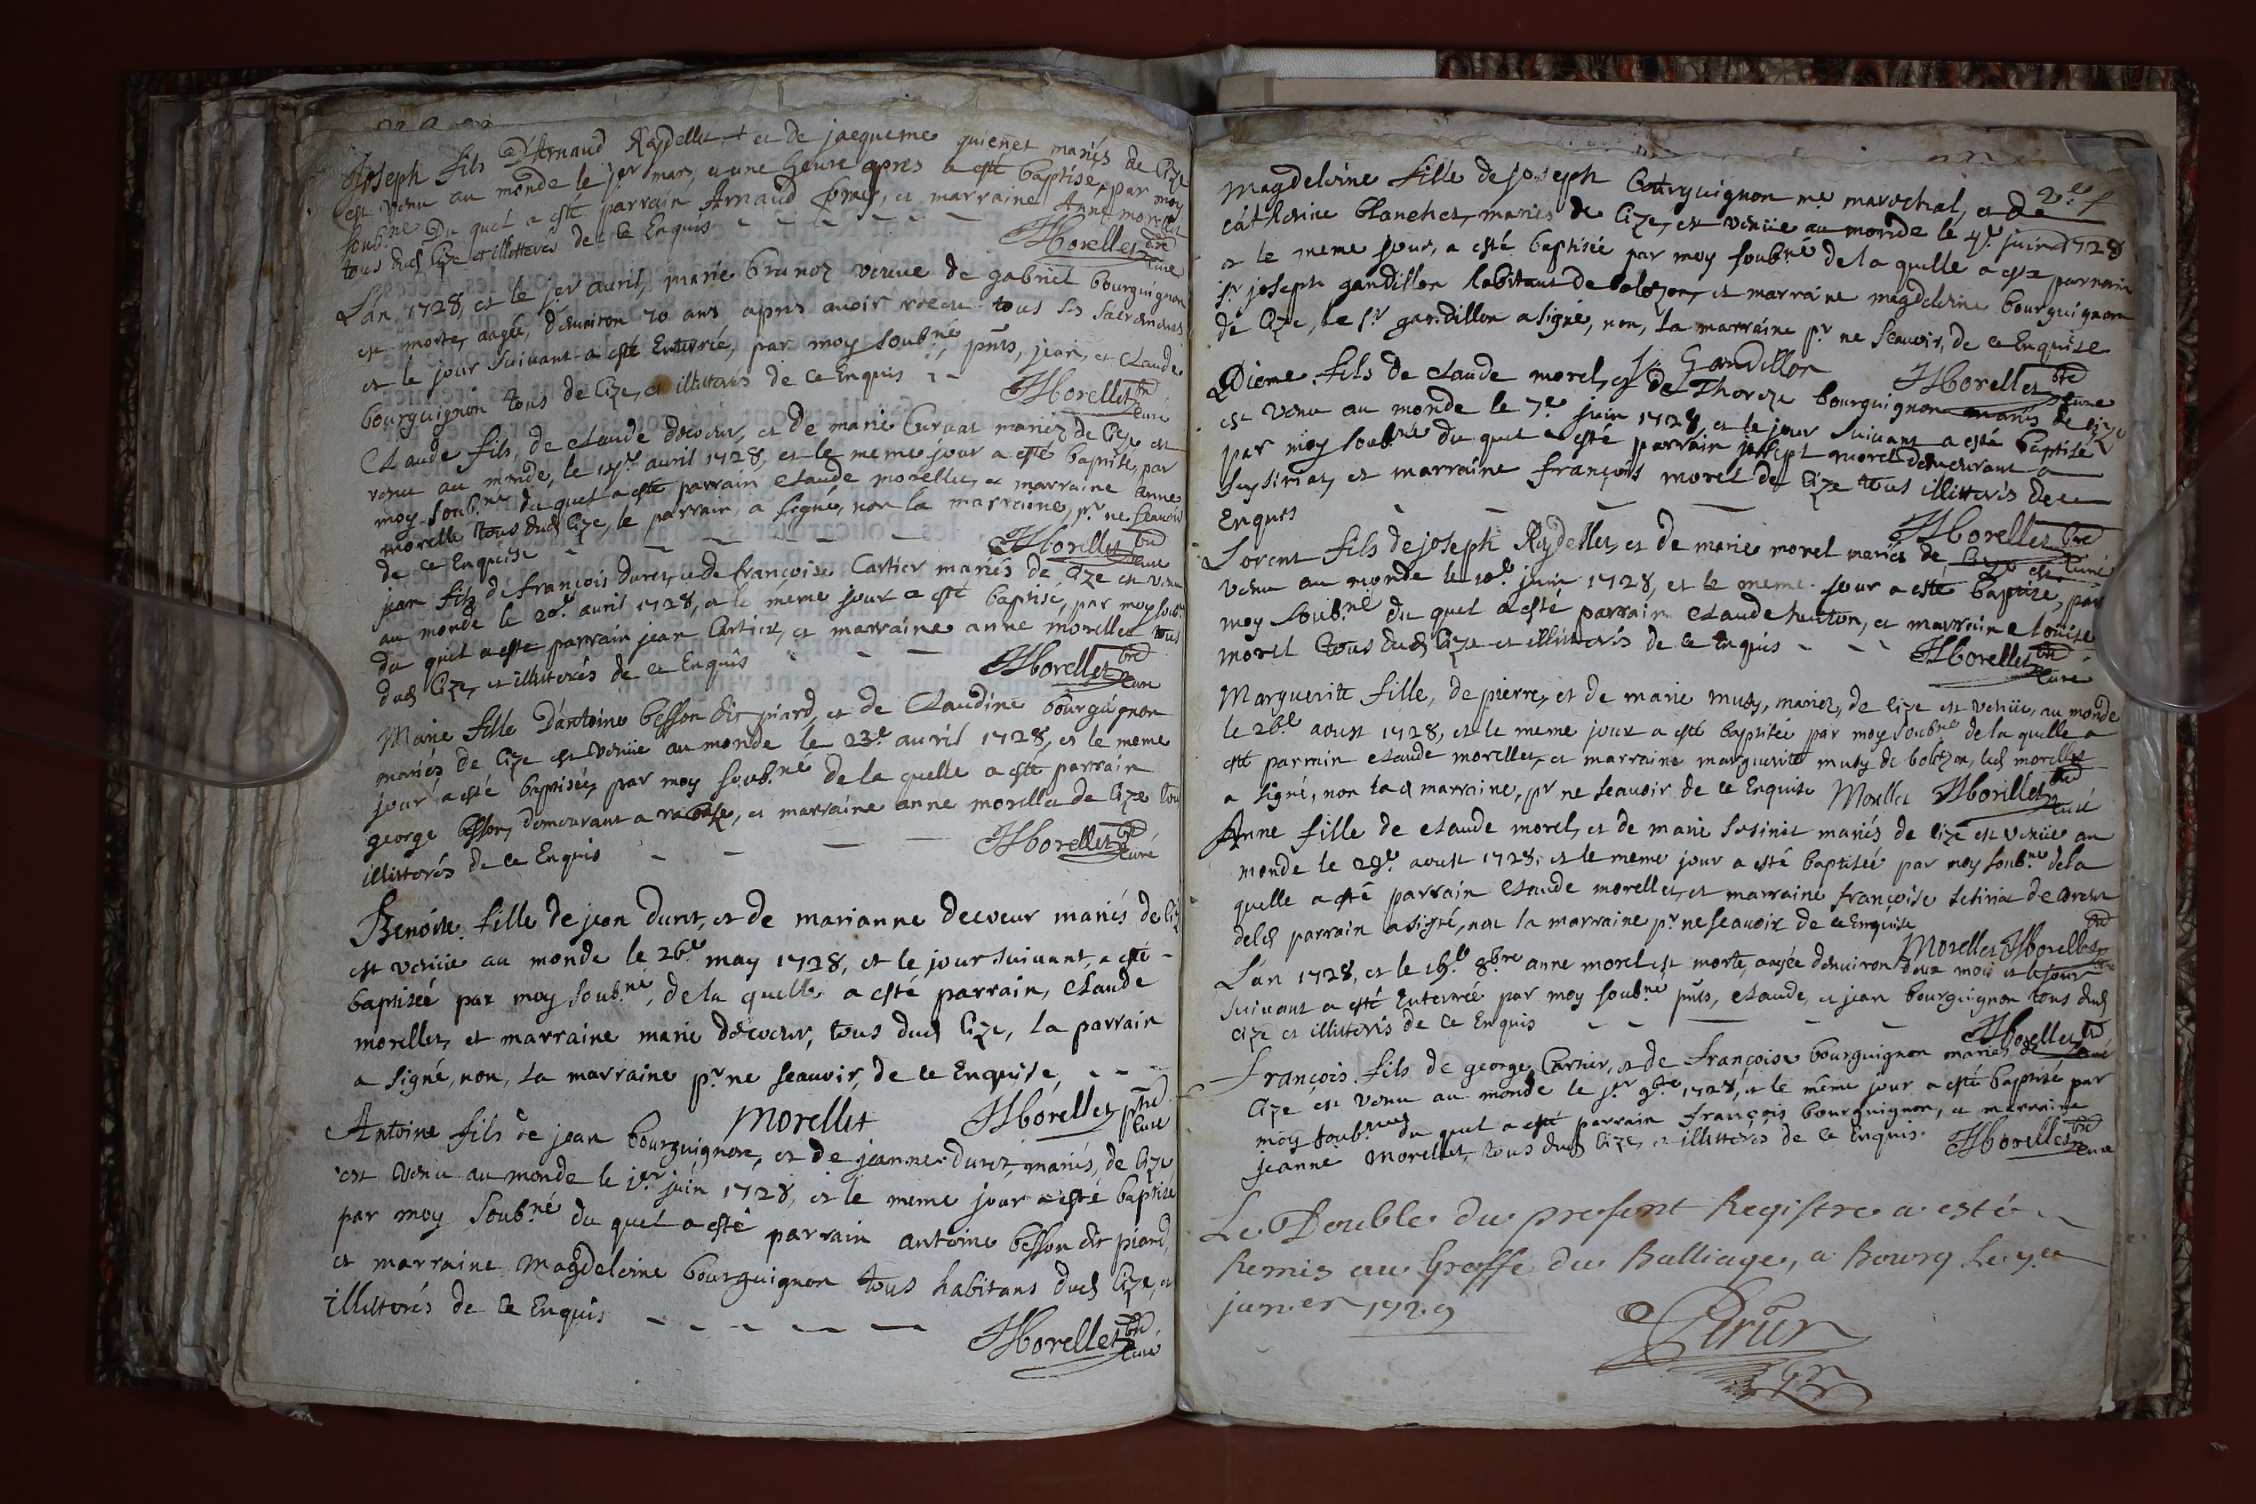 Joseph fils D'Arnaud Raydellet et de jacqueme quienet mariés de Cize
est venu au monde le 1er mars, et une heure apres a esté baptisé, par moy
soub.né Du quel a esté parrain Arnaud, et marraine Anne morellet
tous dud Cize et illitterés de ce Enquis
Morellet ptre curé
L'an 1728, et le 1er avril, marie brunoz veuve de gabriel bourguignon
est morte, aagée, d'environ 70 ans apres avoir receu tous ses sacremens
et le jour suivant a esté Enterrée, par moy soub.né, pñts, jean, et claude
bourguignon tous de Cize, et illitterés de ce Enquis
Morellet ptre curé
Claude fils, de claude decoeur, et de marie Curvat mariéz de Cize est
venu au monde, le avril 1728, et le meme jour a esté baptisé, par
moy soub.né du quel a esté parrain claude morellet, et marraine anne
morelle tous dud Cize, le parrain, a signé, non la marraine, pr ne sçavoir
de ce Enquise
Morellet ptre curé
jean fils de françois duret, et de françoise Cartier mariés de Cize est venu
au monde le 20e avril 1728, et le meme jour a esté baptisé, par moy soub.né
du quel a esté parrain jean Cartier, et marraine anne morellet tous
dud Cize, et illitterés de ce Enquis
Morellet ptre curé
Marie fille D'antoine besson dit piard, et de Claudine bourguignon
mariés de Cize est venüe au monde le 23e avril 1728, et le meme
jour a esté baptisée, par moy soub.né de la quelle a esté parrain
george besson, demeurant a, et marraine anne morellet de Cize tous
illitterés de ce Enquis
Morellet ptre curé
Benoite fille de jean duret, et de marianne decoeur mariés de Cize
est venüe au monde le 26e may 1728, et le jour suivant, a esté
baptisée par moy soub.né, de la quelle a esté parrain, claude
morellet, et marraine marie decoeur, tous dud Cize, la parrain
a signé, non, la marraine pr ne sçavoir, de ce Enquise
Morellet Morellet ptre curé
Antoine fils de jean bourguignon, et de jeanne duret, mariés, de Cize
est venu au monde le 1er juin 1728, et le meme jour a esté baptisé
par moy soub.né du quel a esté parrain antoine besson dit piard,
et marraine Magdeleine bourguignon tous habitans dud Cize, et
illitterés de ce Enquis
Morellet ptre curé
Magdeleine fille de joseph bourguignon me marechal, et de
catherine blanchet, mariés de Cize, est venüe au monde le 4e juin 1728
et le meme jour, a esté baptisée par moy soub.né de la quelle a esté parrain
sr joseph gandillon habitant de bolozon, et marraine magdeleine bourguignon
de Cize, le sr gandillon a signé, non, la marraine pr ne sçavoir, de ce Enquise
J Gandillon Morellet ptre curé
fils de claude morel, et de Thereze bourguignon mariés de Cize
est venu au monde le 7e juin 1728, et le jour suivant a esté baptisé
par moy soub.né du quel a esté parrain joseph morel demeurant a
et marraine françois morel de Cize tous illitterés de ce
Enquis
Morellet ptre curé
Lorent fils de joseph Raydellet, et de marie morel mariés de Cize est
venu au monde le 10e juin 1728, et le meme jour a esté baptisé, par
moy soub.né du quel a esté parrain claude, et marraine louise
morel tous dud Cize et illitterés de ce Enquis
Morellet ptre curé
Marguerite fille, de pierre, et de marie musy, mariez, de Cize est venüe, au monde
le 26e aoust 1728, et le meme jour a esté baptisée par moy soub.né de la quelle a
esté parrain claude morellet, et marraine marguerite musy de bolozon, led morellet
a signé, non lad marraine, pr ne sçavoir de ce Enquise Morellet Morellet ptre curé
Anne fille de claude morel, et de marie mariés de Cize est venüe au
monde le 29e aoust 1728, et le meme jour a esté baptisée par moy soub.né de la
quelle a esté parrain claude morellet, et marraine françoise de
parrain a signé, non la marraine pr ne sçavoir de ce Enquise
Morellet Morellet ptre curé
L'an 1728, et le 16e 8bre anne morel est morte, aagée d'environ deux mois et le jour
suivant a esté Enterrée par moy soub.né pñts, claude, et jean bourguignon tous dud
Cize et illitterés de ce Enquis
Morellet ptre curé
françois fils de george Cartier, et de françoise bourguignon mariés de
Cize est venu au monde le 1er 9bre 1728, et le même jour a esté baptisé par
moy soub.né du quel a esté parrain françois bourguignon, et marraine
jeanne Morellet, tous dud Cize, et illitterés de ce Enquis.
Morellet ptre curé
Le Double du present Registre a esté
Remis au Greffe du Balliage, a Bourg le
janier 1729